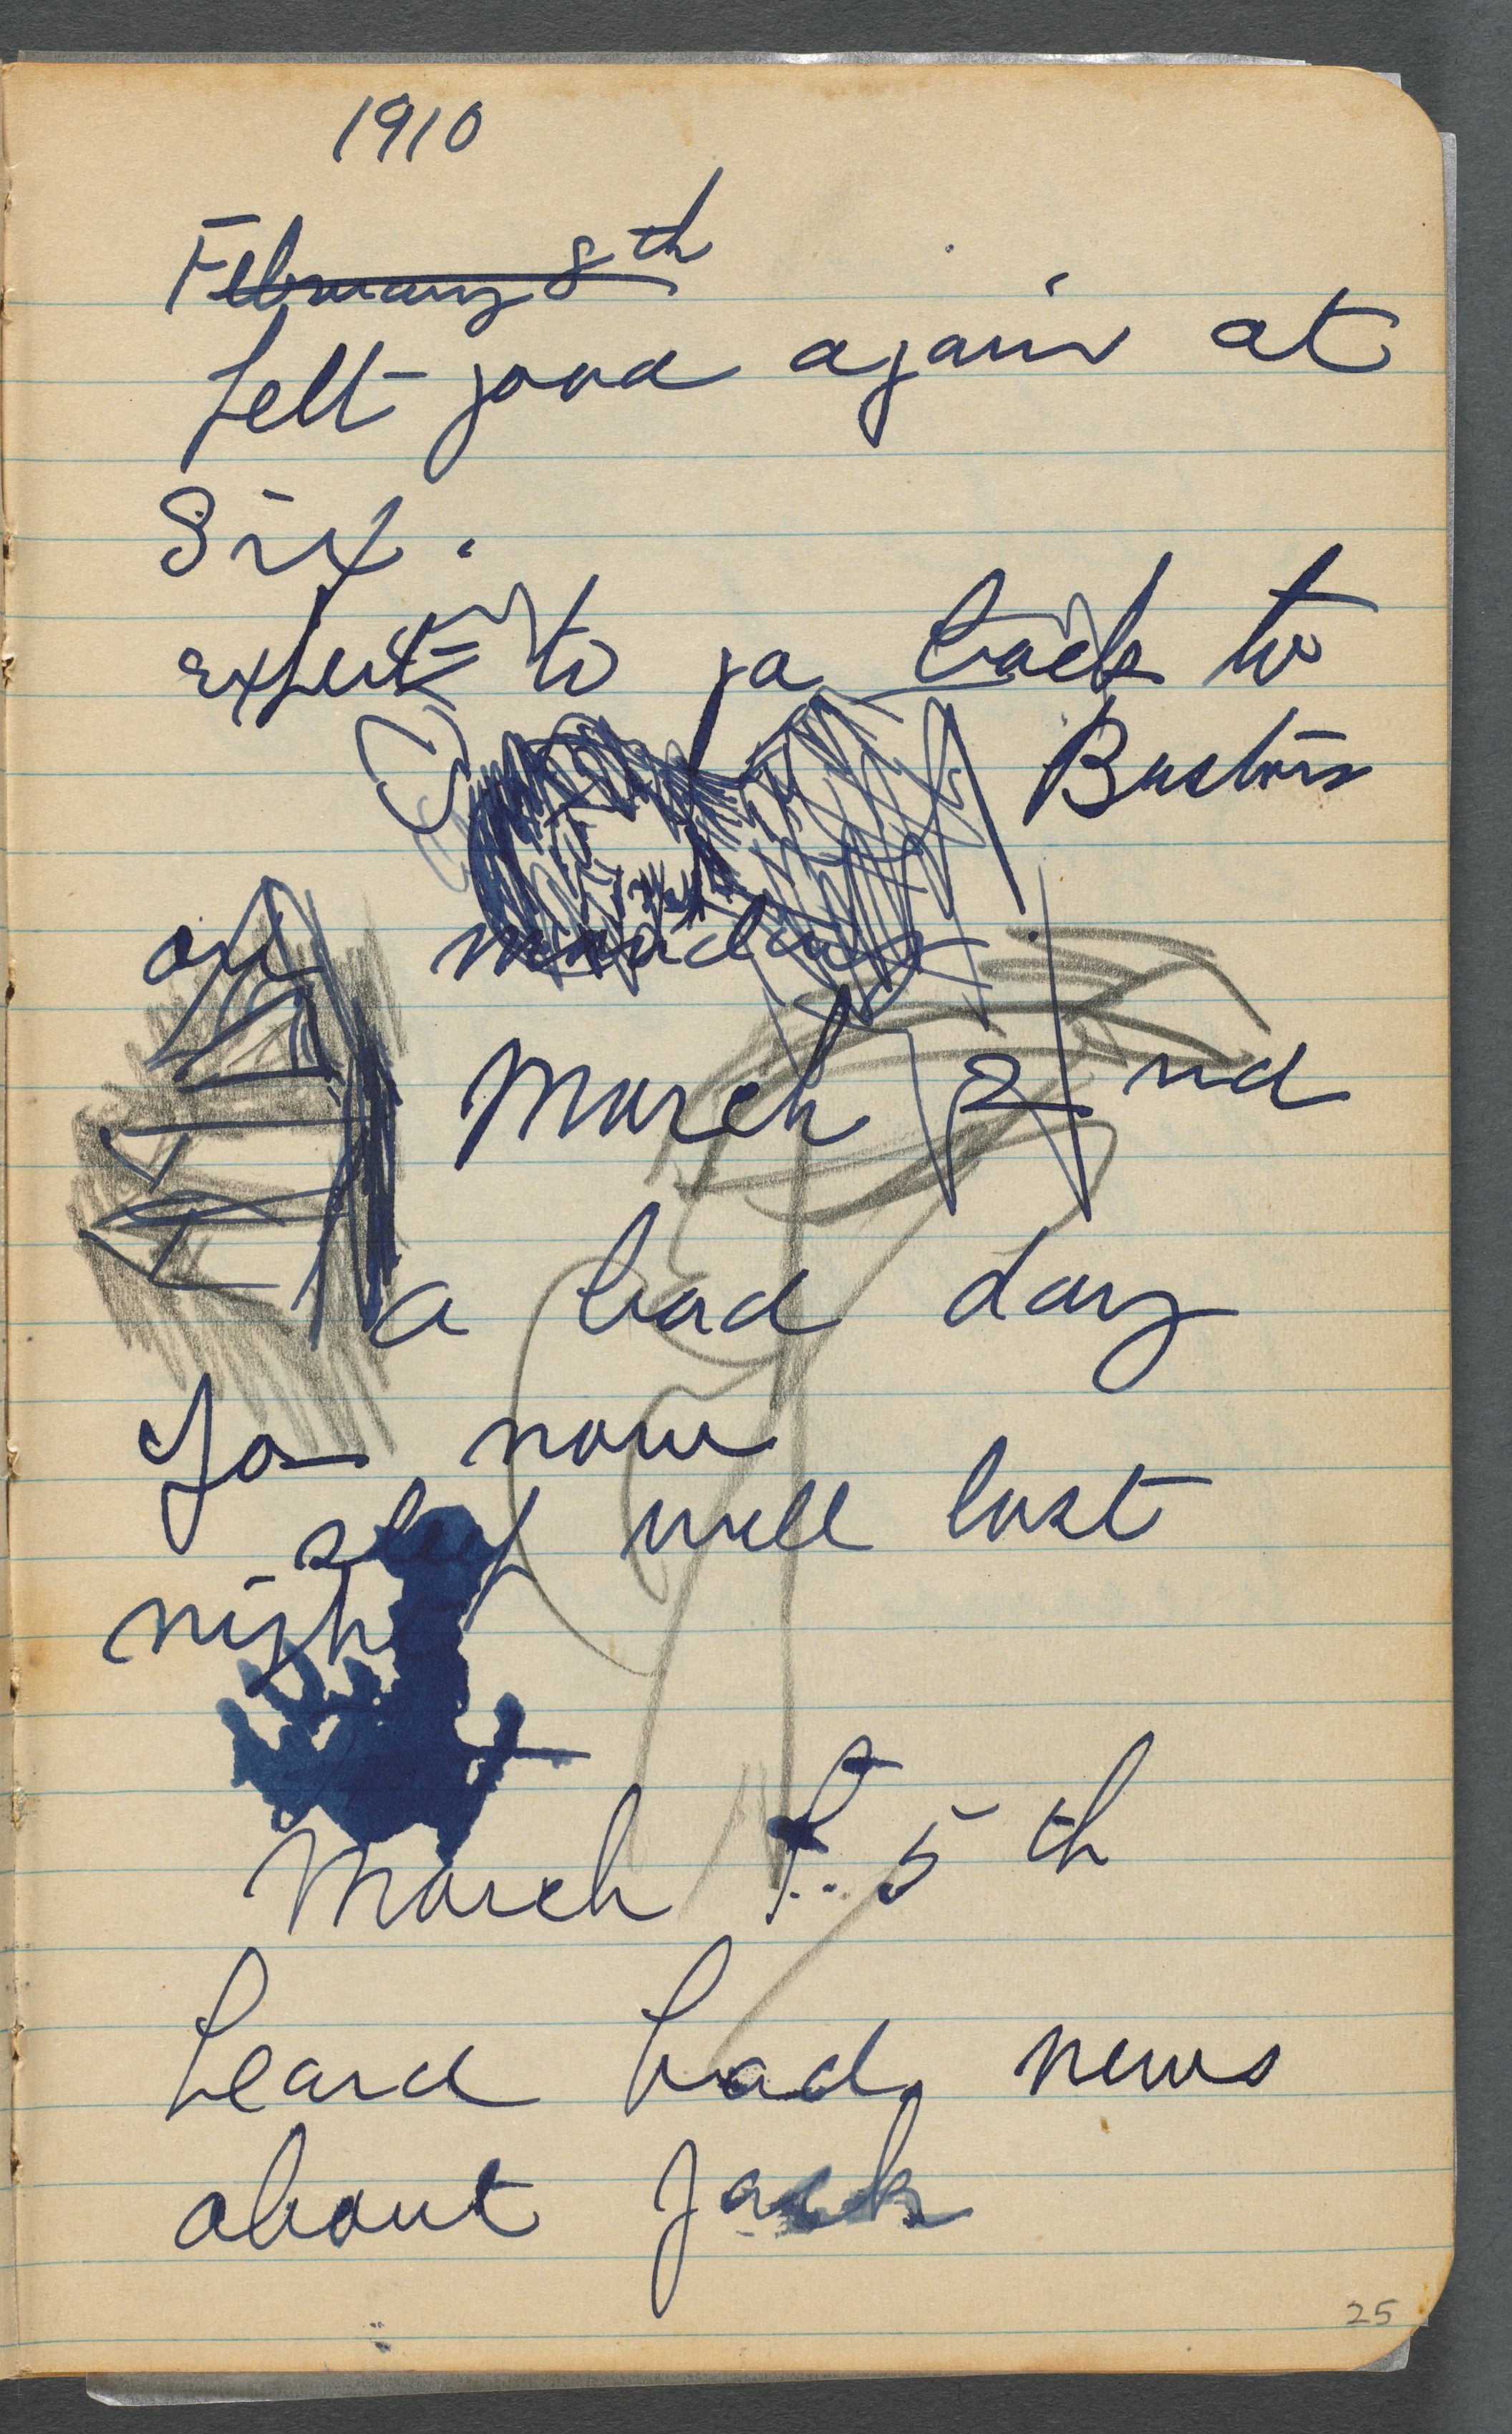 1910
February 8th
felt good again at
Six.
expect to go back to
Boston
on monday
March 2nd
a bad day
for now
sleep well last
night
March 5th
heard bad news
about Jack
25